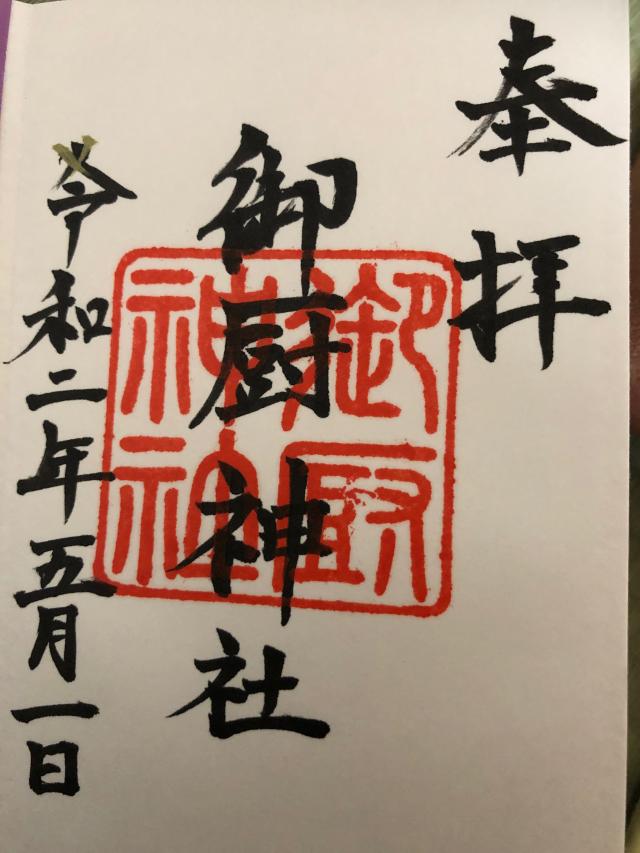 奉拝
御厨神社
御厨神社
令和二年五月一日